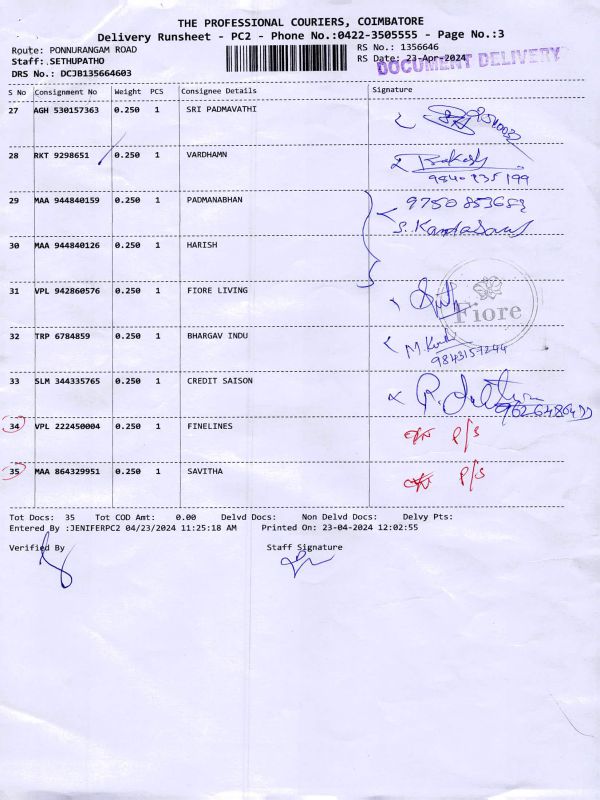 THE PROFESSIONAL COURIERS, COIMBATORE
Delivery Runsheet - PC2 - Phone No.:0422-3505555 - Page No.:3
Route: PONNURANGAM ROAD
RS No.: 1356646
Staff:.SETHUPATHO
RS Date: 23-Apr-2024
DOCUMENT DELIVERY
DRS No.: DCJB135664603
S No Consignment No Weight PCS Consignee Details Signature
27 AGH 530157363 0.250 1 SRI PADMAVATHI
28 RKT 9298651 0.250 1 VARDHAMN
9840 835 199
29 MAA 944840159 0.250 1 PADMANABHAN
S. Kandasamy
30 MAA 944840126 0.250 1 HARISH
31 VPL 942860576 0.250 1 FIORE LIVING
Fiore
32 TRP 6784859 0.250 1 BHARGAV INDU
9843157244
33 SLM 344335765 0.250 1 CREDIT SAISON
34 VPL 222450004 0.250 1 FINELINES P/S
35 MAA 864329951 0.250 1 SAVITHA P/S
Tot Docs: 35 Tot COD Amt: 0.00 Delvd Docs: Non Delvd Docs: Delvy Pts:
Entered By :JENIFERPC2 04/23/2024 11:25:18 AM Printed On: 23-04-2024 12:02:55
Verified By Staff Signature